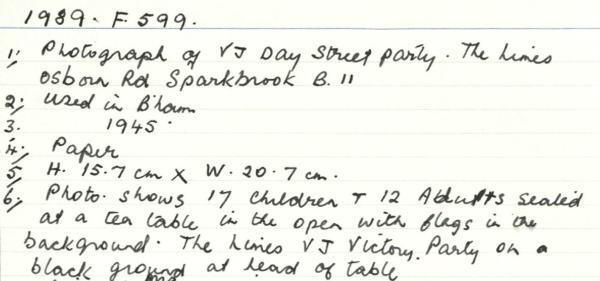 1989. F 599.
1; Photograph of VJ Day Street party. The Limes
Osborn Rd Sparkbrook B. 11
2; Used in B'ham
3. 1945.
4; Paper
5; H. 15.7 cm x W. 20.7 cm.
6; Photo. shows 17 children + 12 Adults seated
at a tea table in the open with flags in the
background. The Limes VJ Victory Party on a
black ground at head of table